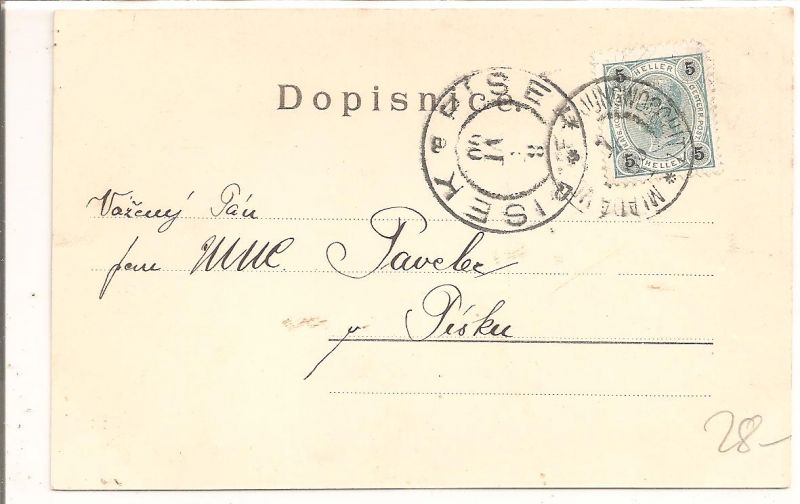 Dopisnice.
PÍSEK PISEK
8 VI 00
5 HELLER 5
5 HELLER 5
Vážený Pán
pan MUC. Pavelec
v Písku
28-